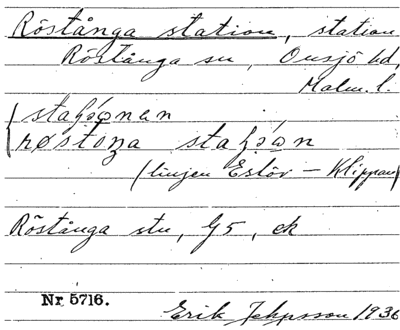 Röstånga station, station
Röstånga sn, Onsjö hd,
Malm. l.
røstöŋa
(linjen Eslöv – Klippan)
Röstånga stn, G5, ek
Nr 5716.
Erik Jeppsson 1936